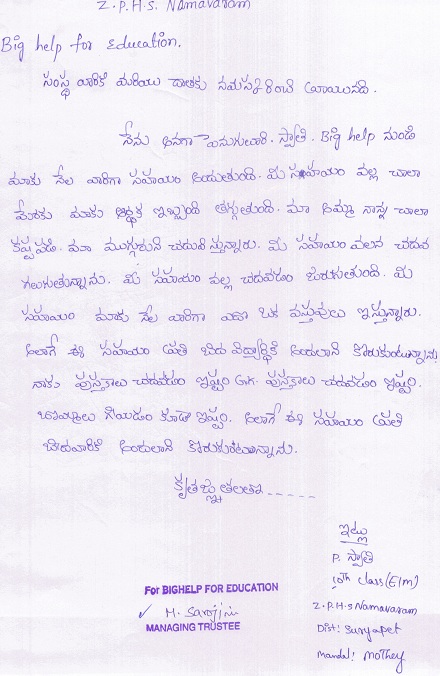 Z.P.H.S. Namavaram
Big help for Education.
సంస్థ వారికి మరియు దాతకు నమస్కరించి
నేను అనగా స్వాతి. Big help నుండి
మాకు నెల వారిగా సహాయం అందుతుంది. మీ సహాయం వల్ల చాలా
మేరకు మాకు ఆర్థిక ఇబ్బంది తగ్గుతుంది. మా అమ్మా నాన్న చాలా
కష్టపడి. మా ముగ్గురుని చదివిస్తున్నారు. మీ సహాయం వలన చదవ
గలుగుతున్నాను. మీ సహాయం వల్ల చదవడం జరుగుతుంది. మీ
సహాయం మాకు నెల వారిగా ఏదో ఒక వస్తువులు ఇస్తున్నారు.
అలాగే ఈ సహాయం ప్రతి బీద విద్యార్థికి అందాలని కోరుకుంటున్నాను
నాకు పుస్తకాలు చదవడం ఇష్టం G.K. పుస్తకాలు చదవడం ఇష్టం.
బొమ్మలు గీయడం కూడా ఇష్టం. అలాగే ఈ సహాయం ప్రతి
బీదవారికి అందాలని కోరుకుంటున్నాను.
కృతజ్ఞతలతో -----
ఇట్లు
P. స్వాతి
10th class (E/m)
Z.P.H.S Namavaram
Dist: Suryapet
Mandal: Mothey
For BIGHELP FOR EDUCATION
M. Sarojini
MANAGING TRUSTEE